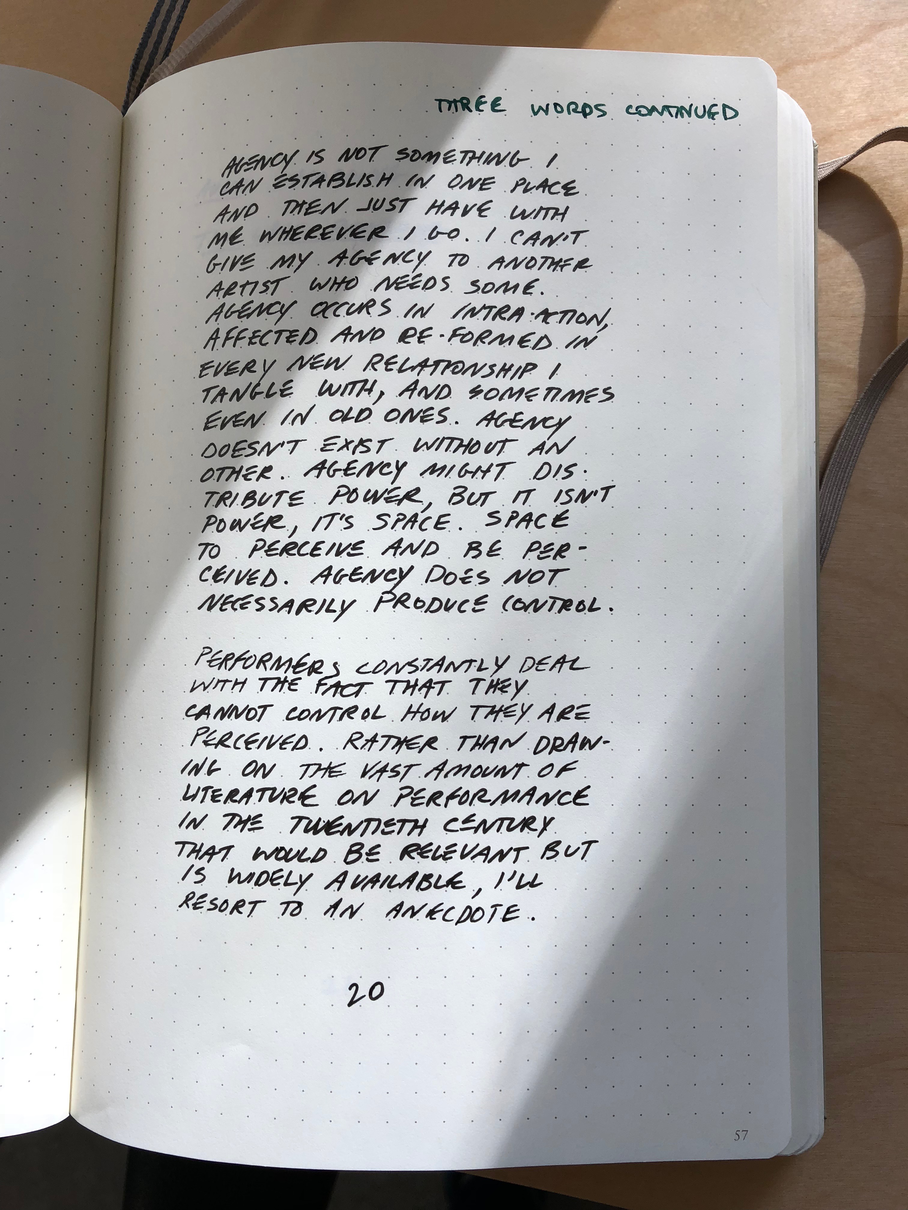 THREE WORDS CONTINUED
AGENCY IS NOT SOMETHING I
CAN ESTABLISH IN ONE PLACE
AND THEN JUST HAVE WITH
ME WHEREVER I GO. I CAN'T
GIVE MY AGENCY TO ANOTHER
ARTIST WHO NEEDS SOME.
AGENCY OCCURS IN INTRA-ACTION,
AFFECTED AND RE-FORMED IN
EVERY NEW RELATIONSHIP I
TANGLE WITH, AND SOMETIMES
EVEN IN OLD ONES. AGENCY
DOESN'T EXIST WITHOUT AN
OTHER. AGENCY MIGHT DIS-
TRIBUTE POWER, BUT IT ISN'T
POWER, IT'S SPACE. SPACE
TO PERCEIVE AND BE PER-
CEIVED. AGENCY DOES NOT
NECESSARILY PRODUCE CONTROL.
PERFORMERS CONSTANTLY DEAL
WITH THE FACT THAT THEY
CANNOT CONTROL HOW THEY ARE
PERCEIVED. RATHER THAN DRAW-
ING ON THE VAST AMOUNT OF
LITERATURE ON PERFORMANCE
IN THE TWENTIETH CENTURY
THAT WOULD BE RELEVANT BUT
IS WIDELY AVAILABLE, I'LL
RESORT TO AN ANECDOTE.
20
57